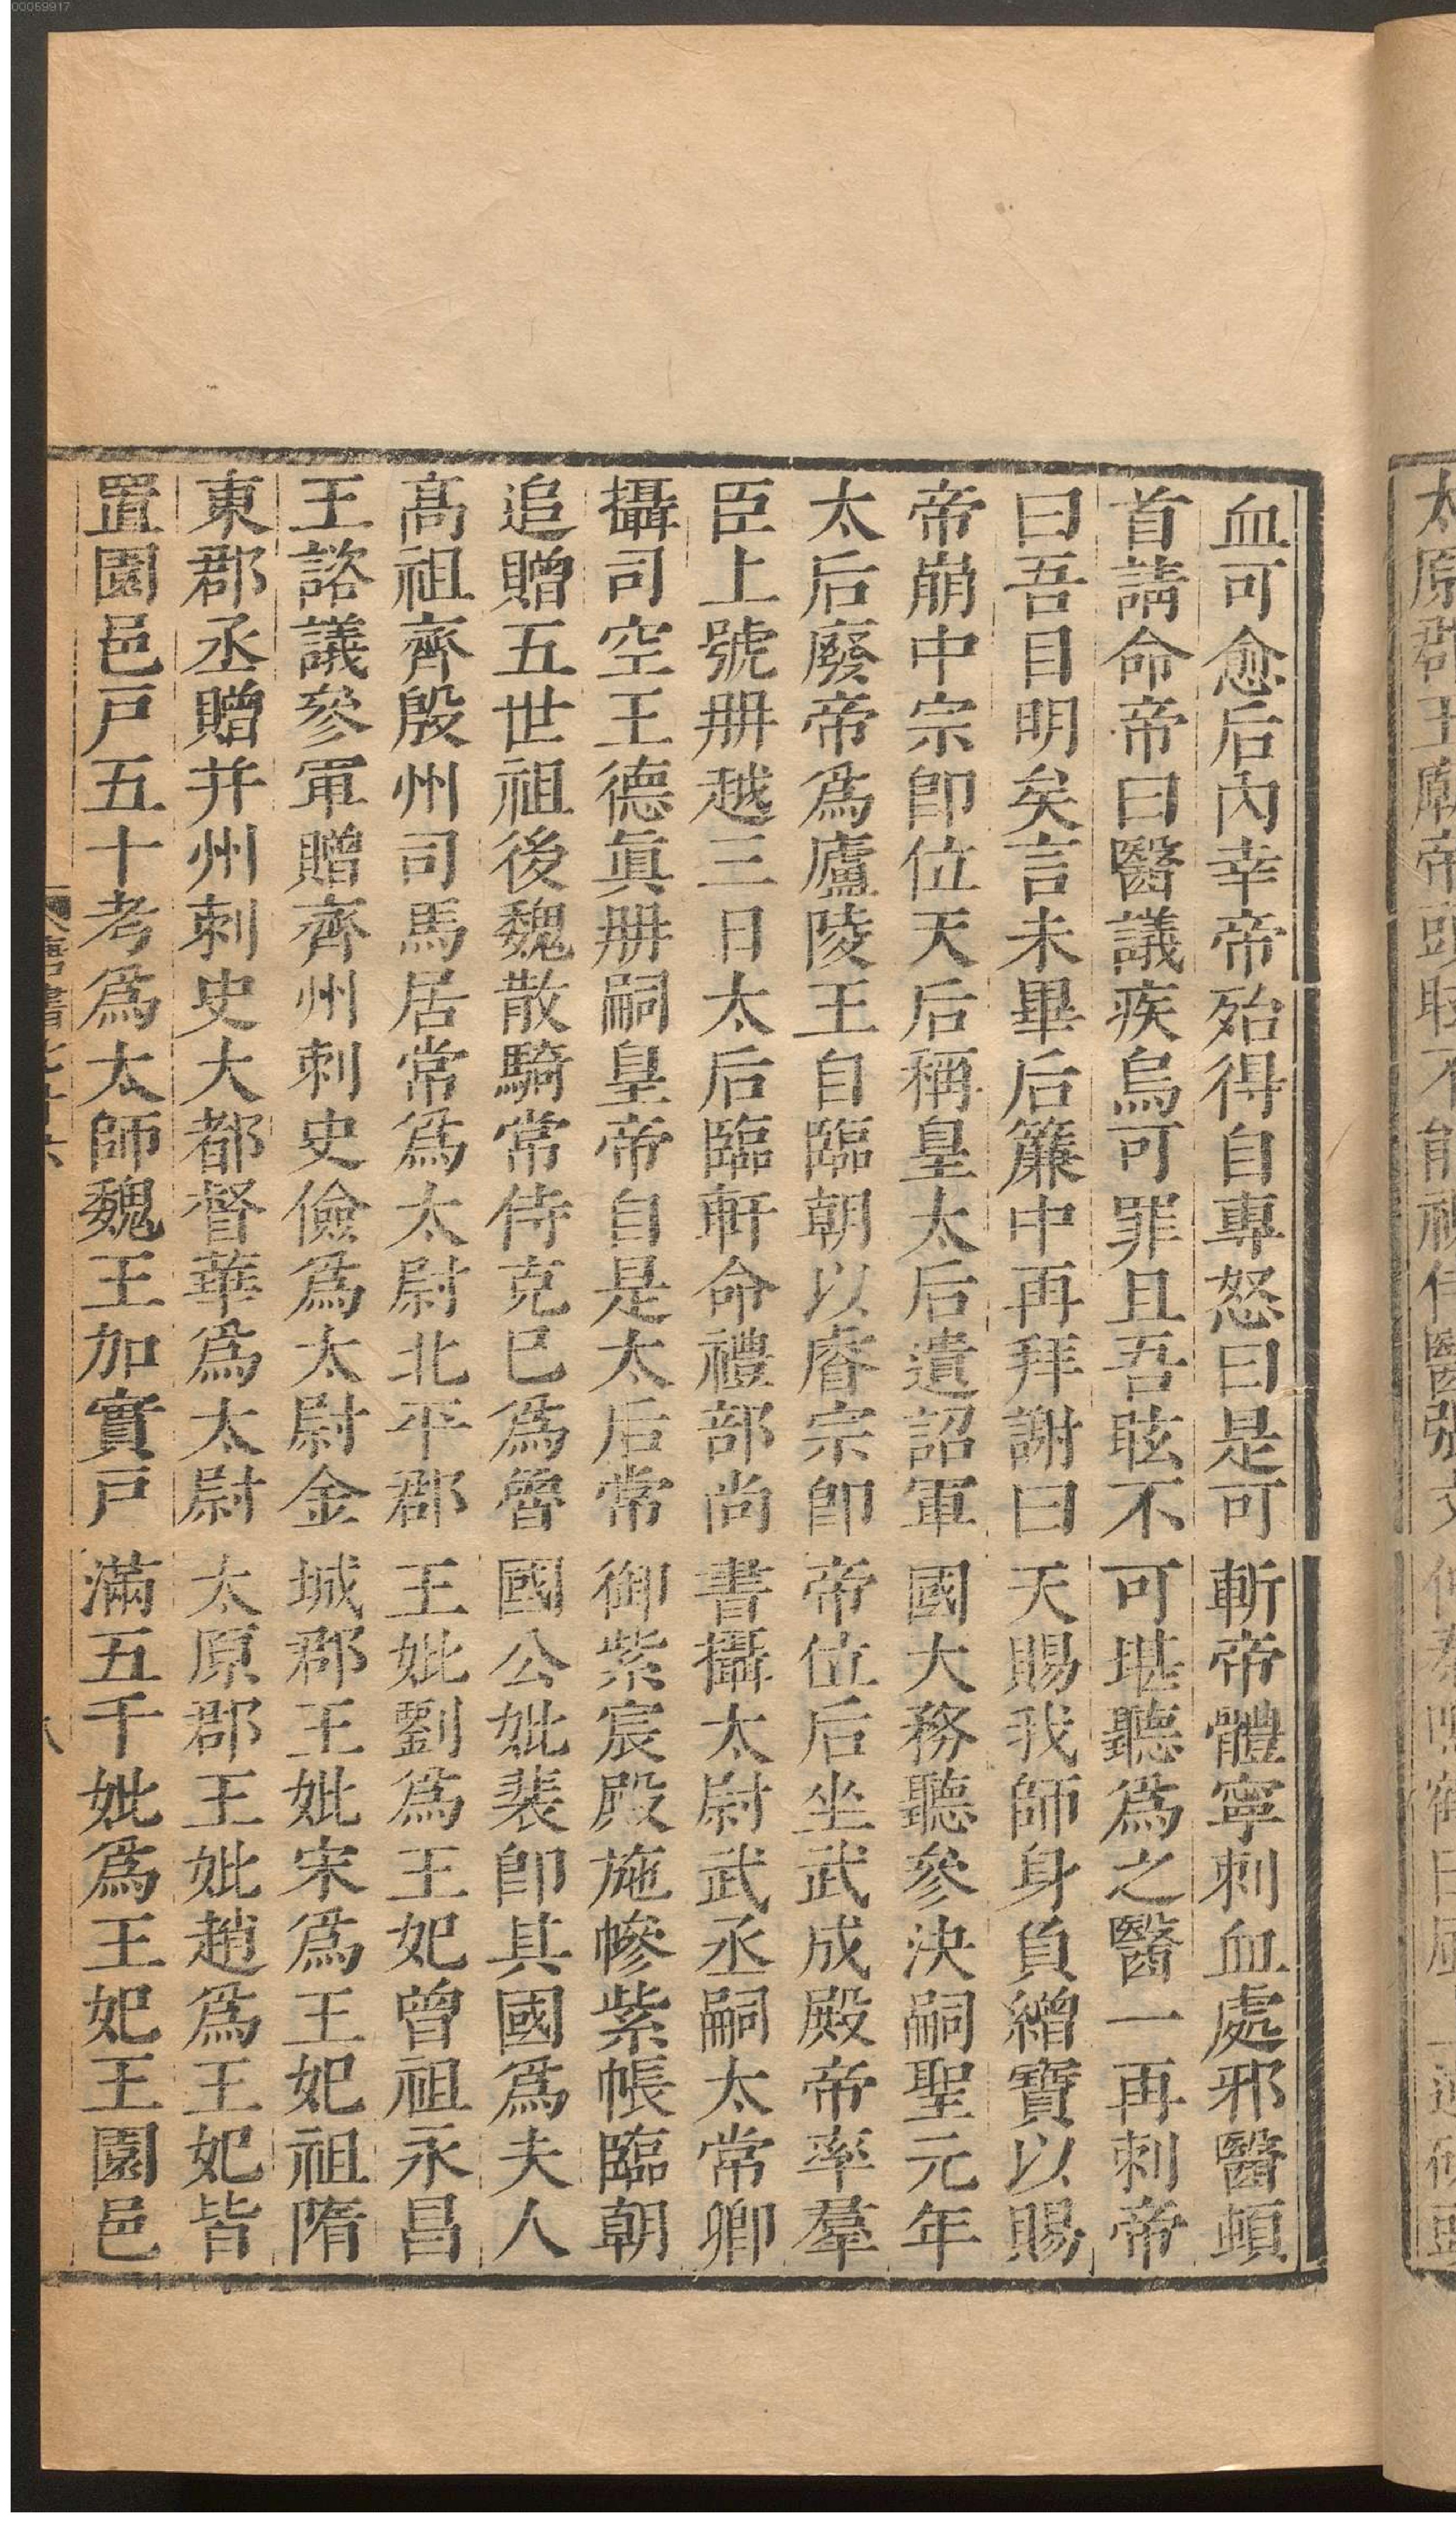 00059917
血可愈后內幸帝殆得自專怒曰是可斬帝體寧刺血處邪醫頓
首請命帝曰醫議疾烏可罪且吾眩不可堪聽爲之醫一再刺帝
曰吾目明矣言未畢后簾中再拜謝曰天賜我師身負繒寶以賜
帝崩中宗卽位天后稱皇太后遺詔軍國大務聽參決嗣聖元年
太后廢帝爲廬陵王自臨朝以睿宗卽帝位后坐武成殿帝率羣
臣上號册越三日太后臨軒命禮部尚書攝太尉武丞嗣太常卿
攝司空王德眞册嗣皇帝自是太后常御紫宸殿施幓紫帳臨朝
追贈五世祖後魏散騎常侍克巳爲魯國公妣裴卽其國爲夫人
高祖齊殷州司馬居常爲太尉北平郡王妣劉爲王妃曾祖永昌
王諮議參軍贈齊州刺史儉爲太尉金城郡王妣宋爲王妃祖隋
東郡丞贈并州刺史大都督華爲太尉太原郡王妣趙爲王妃皆
置園邑戸五十考爲太師魏王加實戸滿五千妣爲王妃王園邑